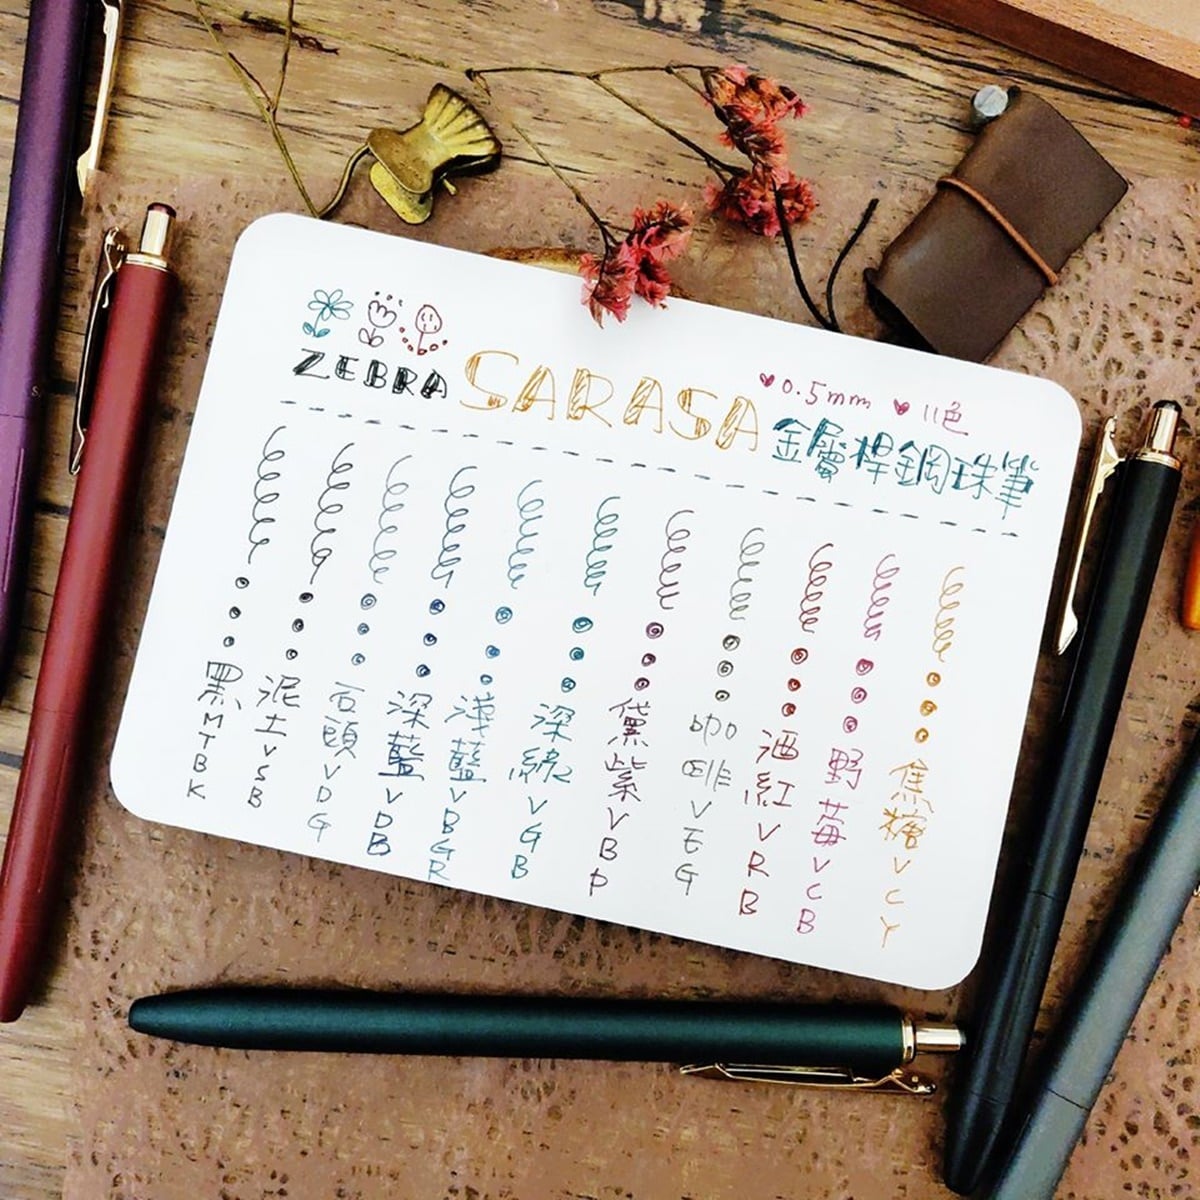 ZEBRA SARASA ♥0.5mm ♥11色
金屬桿鋼珠筆
黑MTBK
泥土VSB
石頭VDG
深藍VDB
淺藍VBGR
深綠VGB
黛紫VBP
咖啡VEG
酒紅VRB
野莓VCB
焦糖VCY